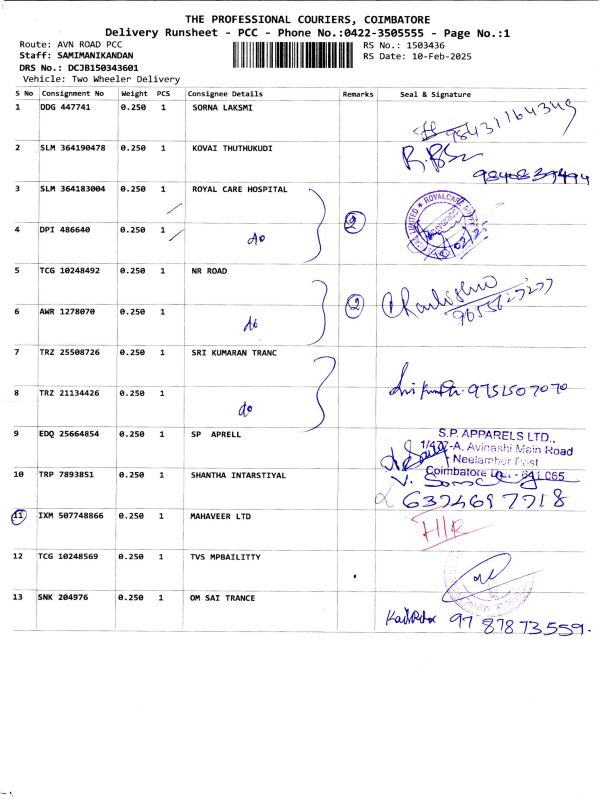 THE PROFESSIONAL COURIERS, COIMBATORE
Delivery Runsheet - PCC - Phone No.:0422-3505555 - Page No.:1
Route: AVN ROAD PCC RS No.: 1503436
Staff: SAMIMANIKANDAN RS Date: 10-Feb-2025
DRS No.: DCJB150343601
Vehicle: Two Wheeler Delivery
S No Consignment No Weight PCS Consignee Details Remarks Seal & Signature
1 DDG 447741 0.250 1 SORNA LAKSMI
2 SLM 364190478 0.250 1 KOVAI THUTHUKUDI
3 SLM 364183004 0.250 1 ROYAL CARE HOSPITAL
4 DPI 486640 0.250 1 do 2
5 TCG 10248492 0.250 1 NR ROAD
6 AWR 1278070 0.250 1 do 2
7 TRZ 25508726 0.250 1 SRI KUMARAN TRANC
8 TRZ 21134426 0.250 1 do 9751507070
9 EDQ 25664854 0.250 1 SP APRELL S.P. APPARELS LTD.,
1/477-A, Avinashi Main Road
Neelambur Post
Coimbatore
10 TRP 7893851 0.250 1 SHANTHA INTARSTIYAL
6374697718
11 IXM 507748866 0.250 1 MAHAVEER LTD
12 TCG 10248569 0.250 1 TVS MPBAILITTY
13 SNK 204976 0.250 1 OM SAI TRANCE
9787873559.